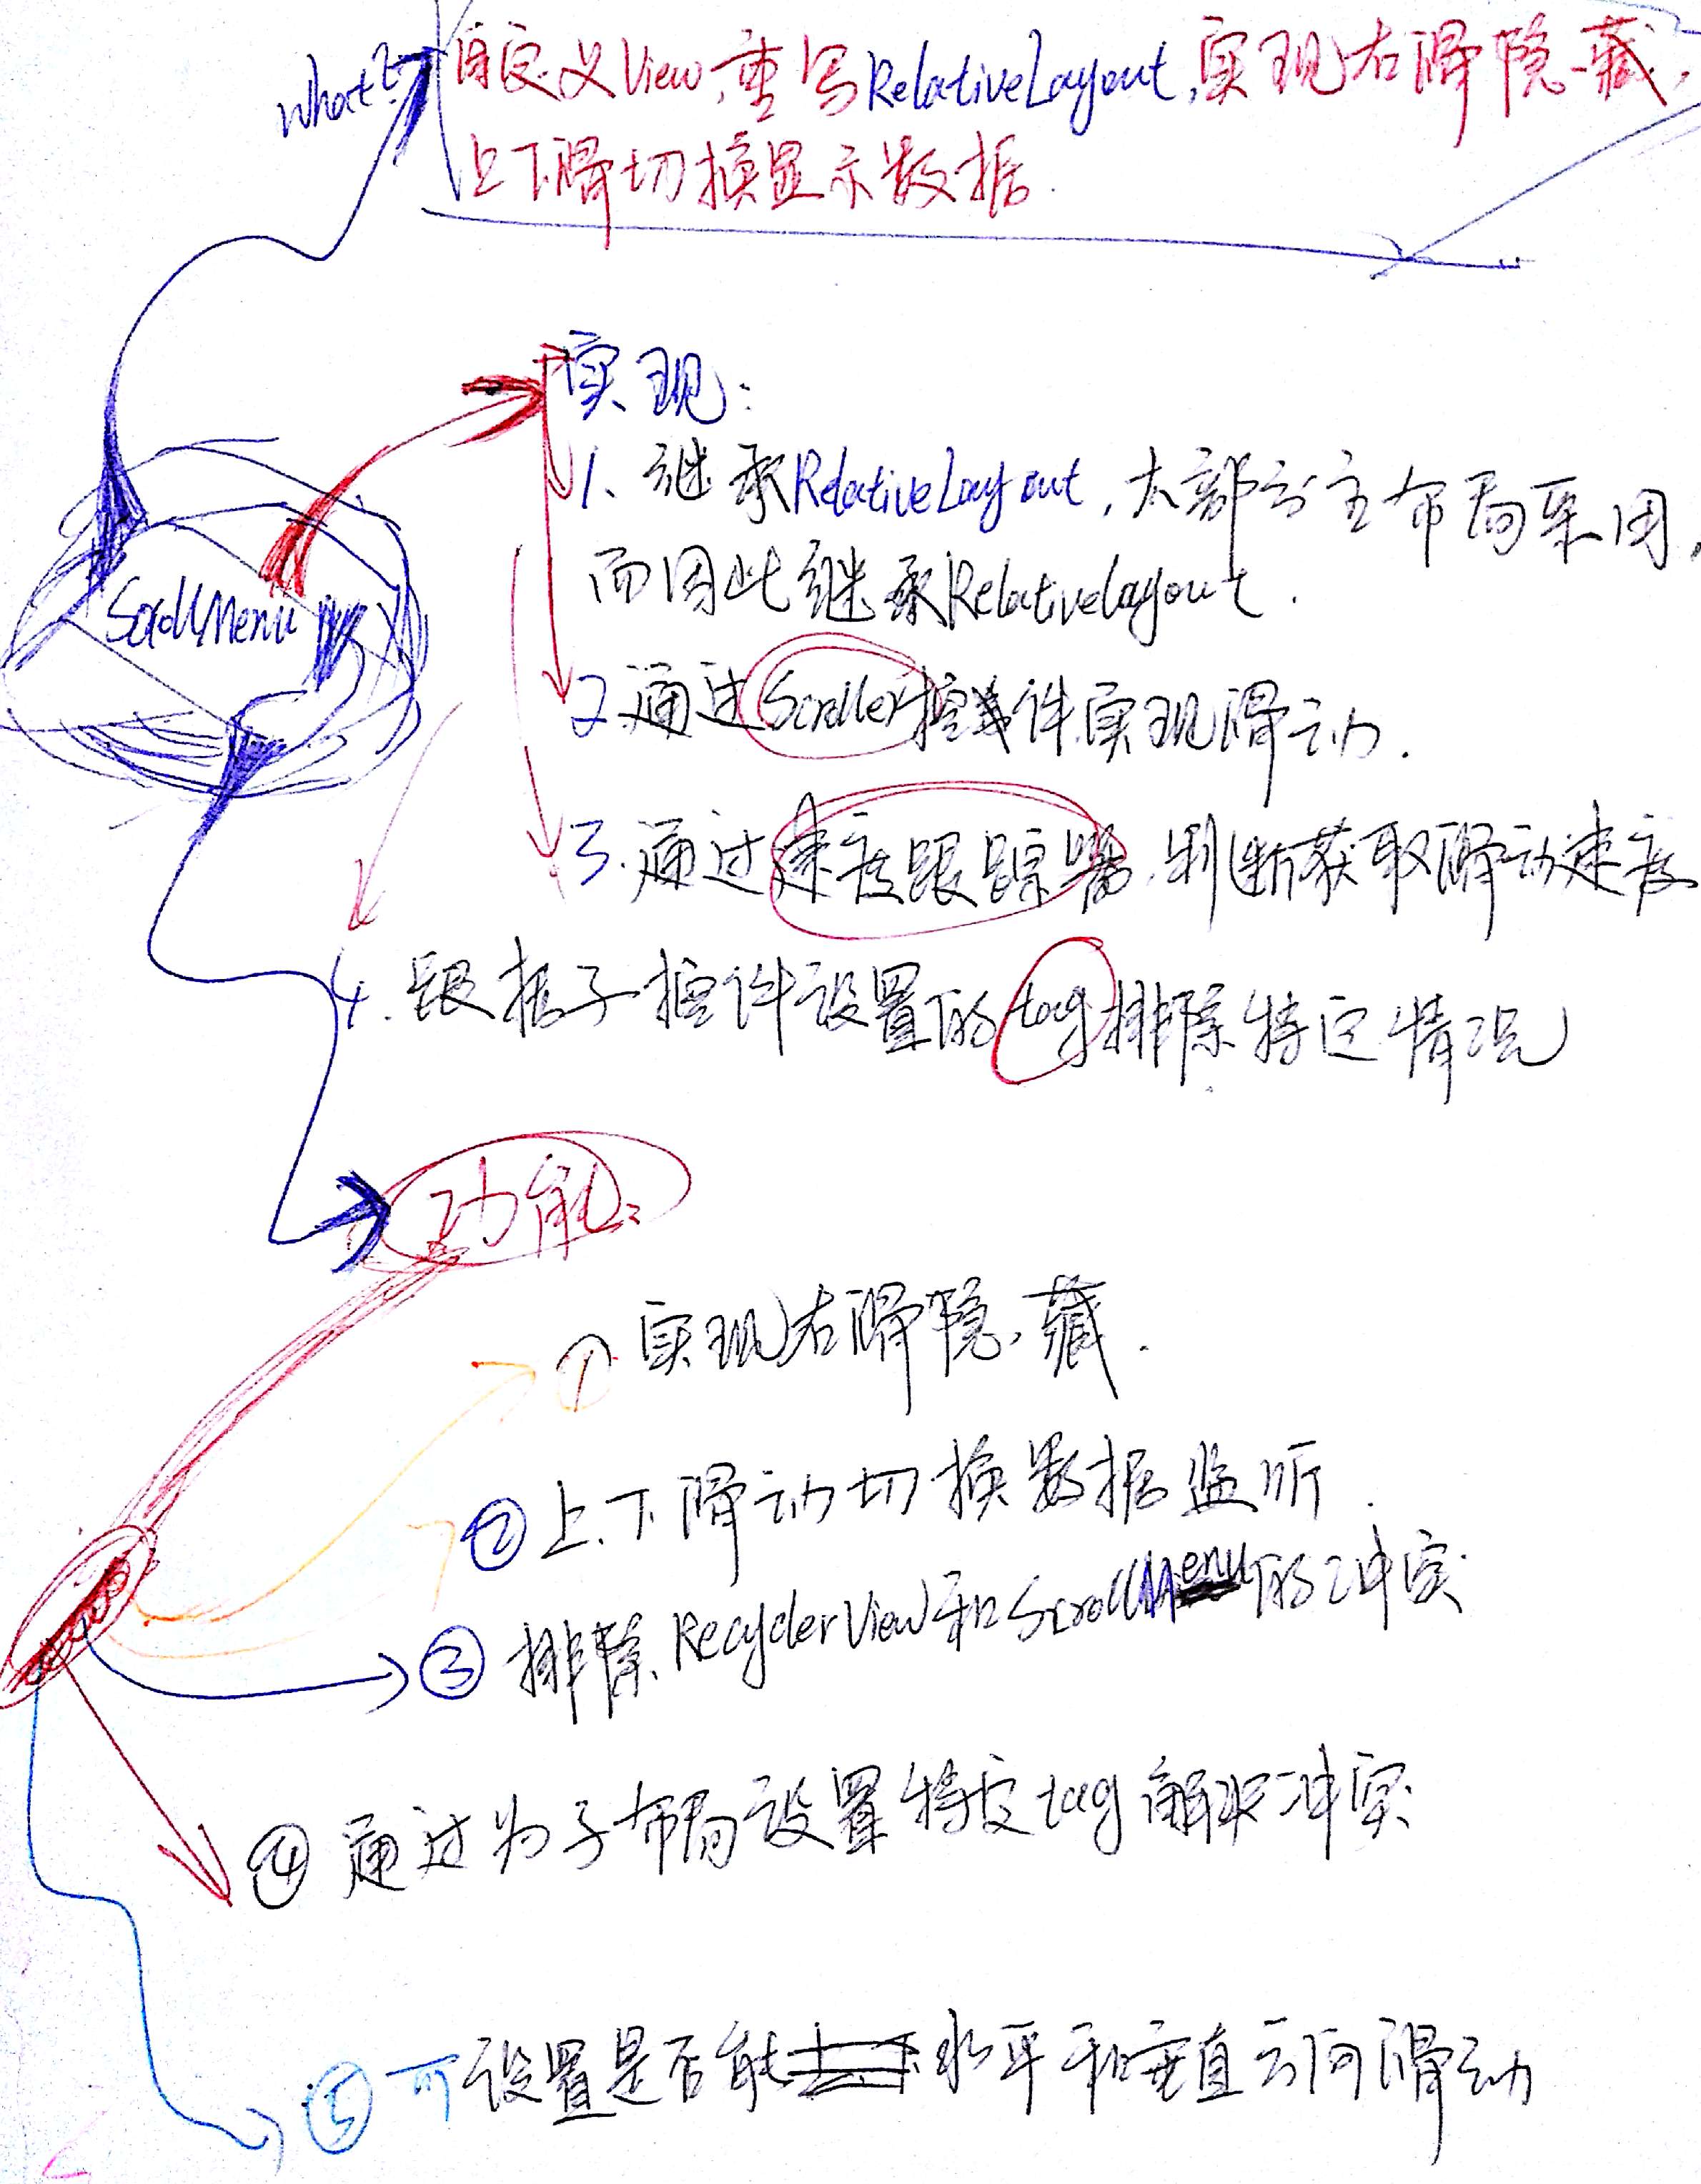 what?
自定义View,重写RelativeLayout,实现右滑隐藏,
上下滑切换显示数据.
实现:
1、继承RelativeLayout,大部分主布局采用,
而因此继承Relativelayout.
ScrollMenu
2.通过Scroller控件实现滑动.
3.通过速度跟踪器,判断获取滑动速度
4.跟据子控件设置的tag排除特定情况
功能:
① 实现右滑隐藏.
② 上、下滑动切换数据监听.
③ 排除RecyclerView和ScrollMenu的冲突
④ 通过为子布局设置特定tag解决冲突
⑤ 可设置是否能水平和垂直方向滑动